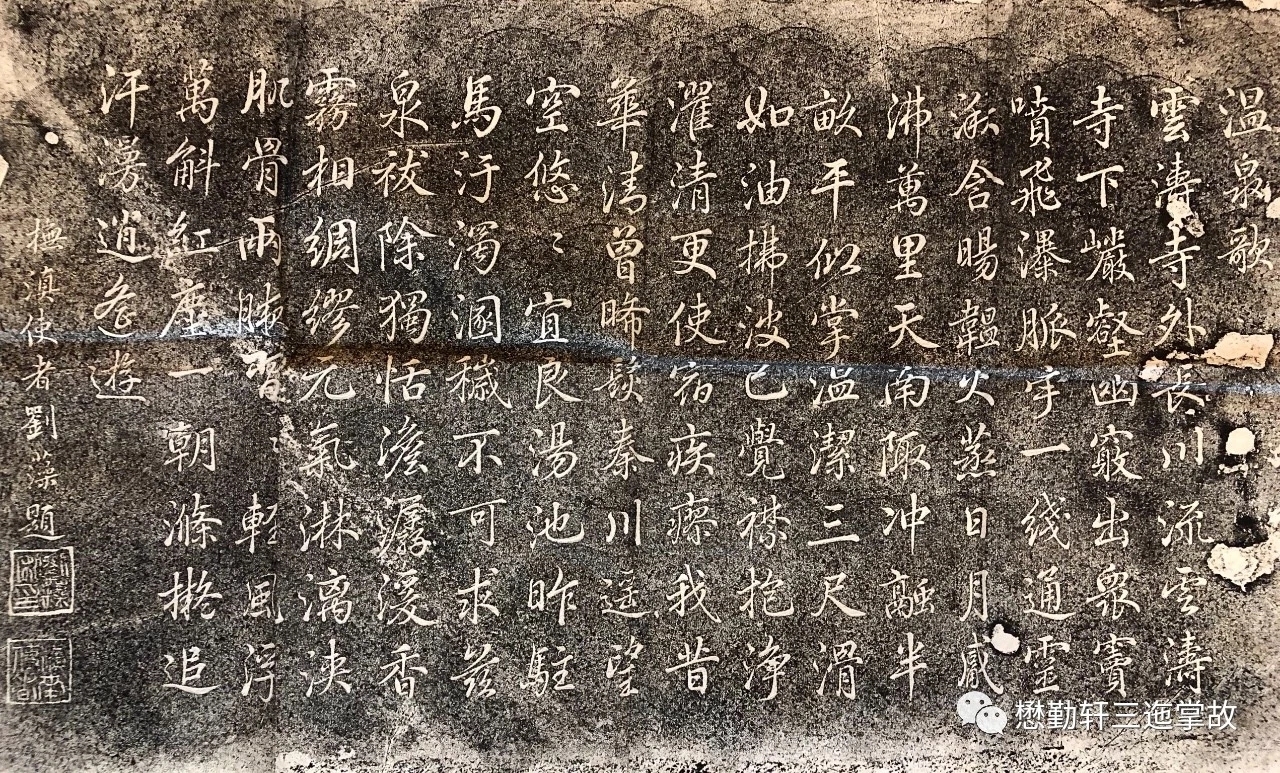 温泉歌
雲濤寺外長川流云濤
寺下巖壑幽竅出衆竇
噴飛瀑脈一綫通靈
湫含暘韞火蒸日月感
沸萬里天南陬冲融半
畝平似掌温潔三尺滑
如油拂波已覺襟抱浄
濯清更使宿疾瘳我昔
華清曾晞髮秦川遥望
空悠〻宜良湯池昨駐
馬汙濁溷穢不可求兹
泉祓除獨恬澹潺湲香
霧相綢繆元氣淋漓浹
肌骨兩腋習〻輕風浮
萬斛紅塵一朝滌追
汗漫逍遥遊
撫滇使者劉藻題
懋勤轩三迤掌故